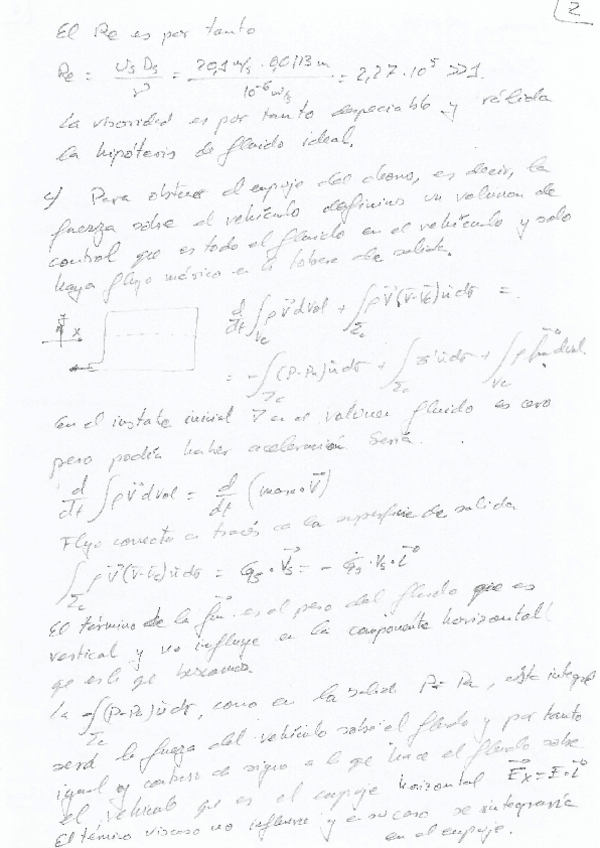 2
El Re es por tanto
Re = U_s D_s / ν = 20,1 m/s · 0,0113 m / 10^-6 m²/s = 2,27 · 10^5 >> 1.
La viscosidad es por tanto despreciable y válida
la hipótesis de fluido ideal.
c) Para obtener el empuje del chorro, es decir, la
fuerza sobre el vehículo definimos un volumen de
control que es todo el fluido en el vehículo y solo
haya flujo másico en la tobera de salida.
d/dt ∫_Vc ρ v⃗ dvol + ∫_Σc ρ v⃗ (v⃗ - v⃗c) n⃗ dσ =
x
= - ∫_Σc (P - Pa) n⃗ dσ + ∫_Σc τ' n⃗ dσ + ∫_Vc ρ f⃗m dvol.
En el instante inicial v⃗ en el volumen fluido es cero
pero podría haber aceleración. Sería
d/dt ∫ ρ v⃗ dvol = d/dt (masa · v⃗)
Flujo convectivo a través de la superficie de salida
∫_Σc ρ v⃗ (v⃗ - v⃗c) n⃗ dσ = G_s · v⃗_s = - G_s · v_s · i⃗
El término de la f⃗m es el peso del fluido que es
vertical y no influye en la componente horizontal
que es la que buscamos.
La -∫_Σc (P - Pa) n⃗ dσ, como en la salida P = Pa, esta integral
será la fuerza del vehículo sobre el fluido y por tanto
igual y contraria de signo a la que hace el fluido sobre
el vehículo que es el empuje horizontal E⃗x = E · i⃗
El término viscoso no influye y en su caso se integraría
en el empuje.